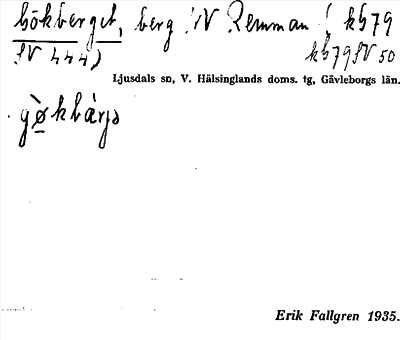 Gökberget, berg NV Remman (kb 79
SV 444)
kb 79 SV 50
Ljusdals sn, V. Hälsinglands doms. tg, Gävleborgs län.
gø̀kbà̀rjə
Erik Fallgren 1935.